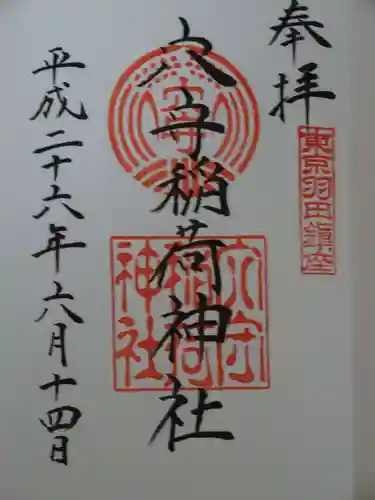 奉拝
東京羽田鎮座
穴守稲荷神社
穴守稲荷神社
平成二十六年六月十四日